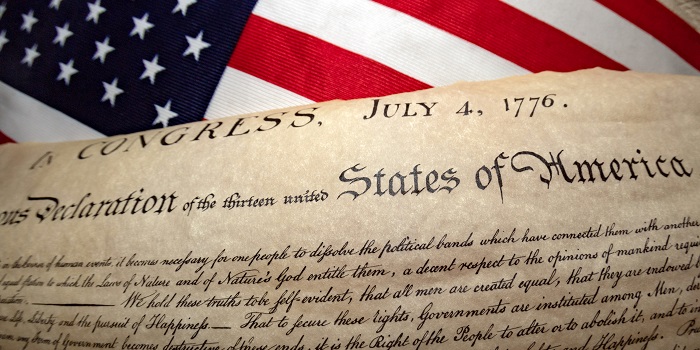 IN CONGRESS, JULY 4, 1776.
ous Declaration of the thirteen united States of America
it becomes necessary for one people to dissolve the political bands which have connected them with another
to which the Laws of Nature and of Nature's God entitle them, a decent respect to the opinions of mankind requi
We hold these truths to be self-evident, that all men are created equal, that they are endowed b
Liberty and the pursuit of Happiness. — That to secure these rights, Governments are instituted among Men, de
Form of Government becomes destructive of these ends, it is the Right of the People to alter or to abolish it, and to in
Happiness.